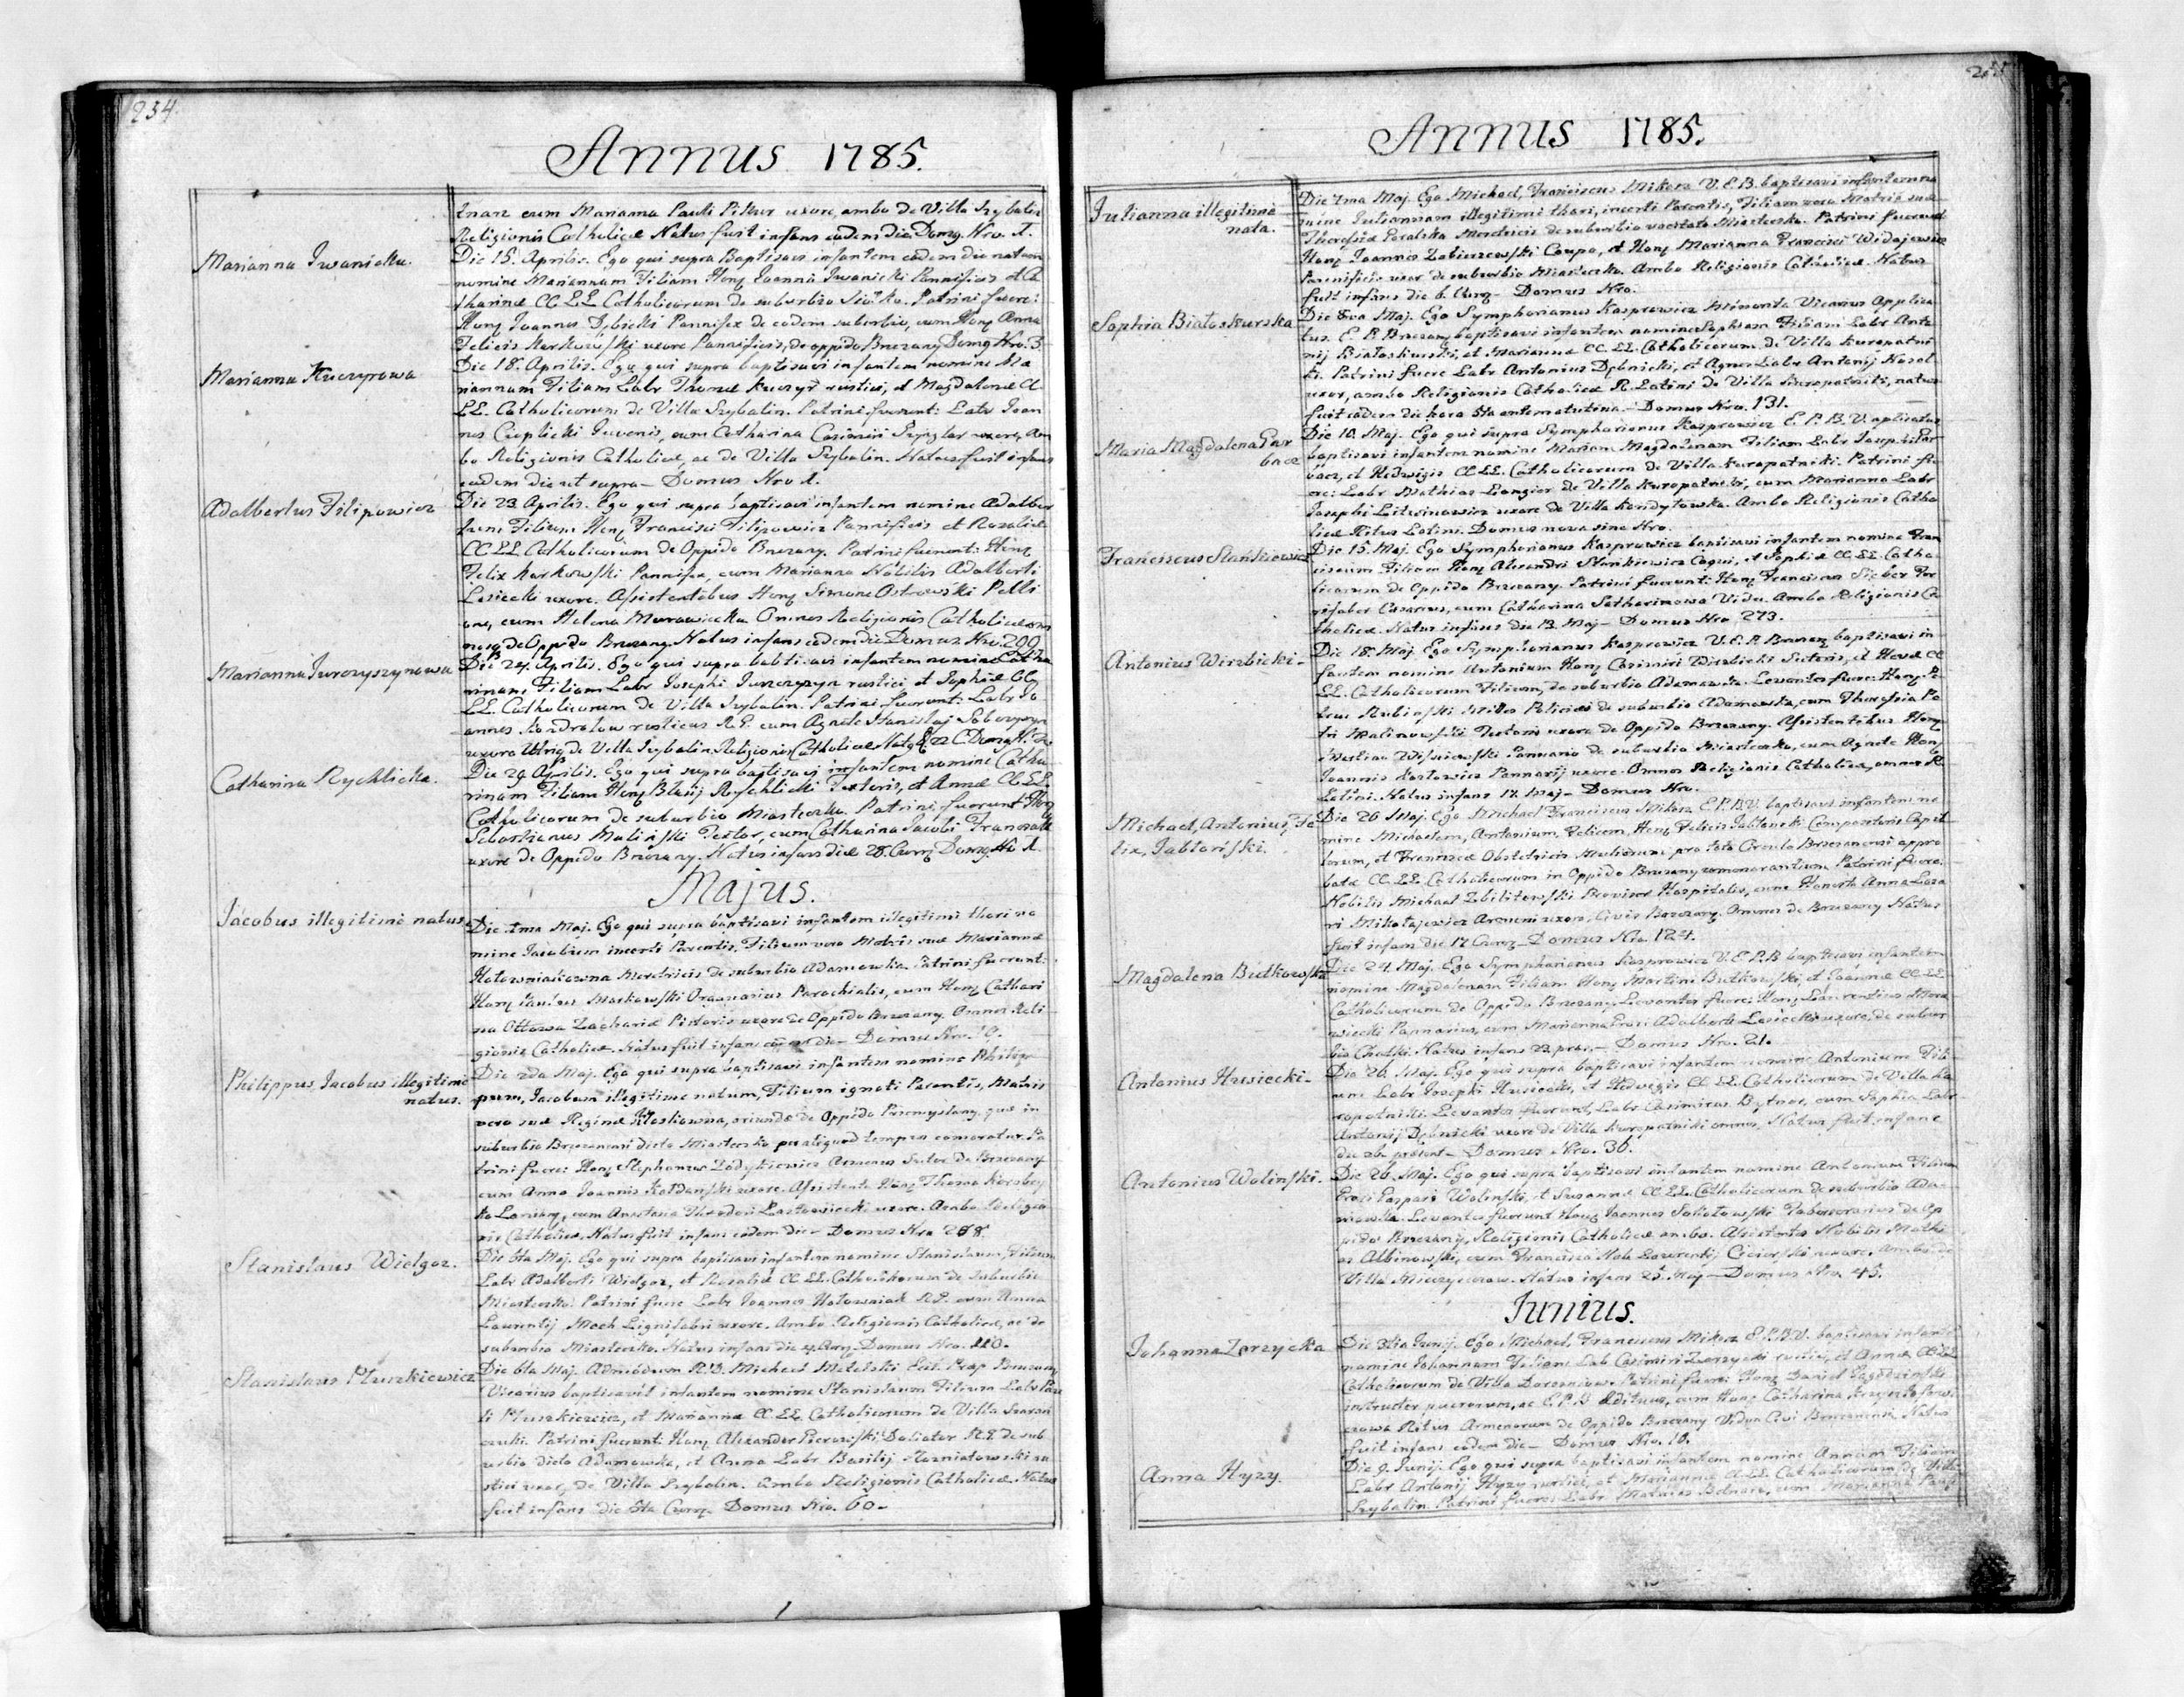 234.
Annus 1785.
cum Marianna Pauli uxore, ambo de Villa Szybalin
Religionis Catholicæ Natus fuit infans eadem die Domg. Nro. 1.
Marianna Iwanicka.
Die 15. Aprilis. Ego qui supra Baptisavi infantem eadem die natam
nomine Mariannam Filiam Hong Ioannis Iwanicki Pannificis et Ca
tharinæ CC. LL. Catholicorum de suburbio Siołko. Patrini fuere:
Hong Ioannes Dębicki Pannifex de eodem suburbio, cum Hong Anna
Felicis Karkowski uxore Pannificis, de oppido Brzezany Domg Nro. 3.
Marianna Kuczyrowa
Die 18. Aprilis. Ego qui supra baptisavi infantem nomine Ma
riannam Filiam Labr Thomæ Kuczyr rustici, et Magdalenæ CC.
LL. Catholicorum de Villa Szybalin. Patrini fuerunt: Labr Ioan
nes Cieplicki Iuvenis, cum Catharina Casimiri uxore, Am
bo Religionis Catholicæ, ac de Villa Szybalin. Natus fuit infans
eadem die ut supra – Domus Nro 1.
Adalbertus Filipowicz
Die 23 Aprilis. Ego qui supra baptisavi infantem nomine Adalber
tum Filium Hong Francisci Filipowicz Pannificis et Rosaliæ
CC LL Catholicorum de Oppido Brzezany. Patrini fuerunt: Hong
Felix Karkowski Pannifex, cum Marianna Nobilis Adalberti
Lesiecki uxore. Assistentibus Hong Simone Ostrowski Pelli
one, cum Helena Murawiecka Omnes Religionis Catholicæ om
nesq de Oppido Brzezany. Natus infans eadem die Domus Nro. 209.
Marianna Iurczyszynowa
Die 24. Aprilis. Ego qui supra babtisavi infantem nomine Catha
rinam Filiam Labr Iosephi Iurczyszyn rustici et Sophiæ CC.
LL. Catholicorum de Villa Szybalin. Patrini fuerunt: Labr Io
annes Kondratow rusticus R. G. cum Agnete Stanislaj
uxore de Villa Szybalin Religionis Catholicæ
Catharina Rychlicka.
Die 29. Aprilis. Ego qui supra baptisavi infantem nomine Catha
rinam Filiam Hong Blasij Rychlicki Textoris, et Annæ CC LL.
Catholicorum de suburbio Miasteczko. Patrini fuerunt Hong
Sebastianus Maliński Textor, cum Catharina Iacobi
uxore de Oppido Brzezany. Natus infans die 28. Curr Domg. No 1.
Majus.
Jacobus illegitime natus.
Die 1ma Maj. Ego qui supra baptisavi infantem illegitimi thori no
mine Iacobum incerti Parentis, Filium vero Matris suæ Mariannæ
Hołowniakowna Meretricis de suburbio Adamowka. Patrini fuerunt:
Hong Paulus Markowski Organarius Parochialis, cum Hong Cathari
na Ottowa Zachariæ Pistoris uxore de Oppido Brzezany. Omnes Reli
gionis Catholicæ. Natus fuit infans eadem die – Domus Nro. 9.
Philippus, Iacobus illegitime
natus.
Die 2da Maj. Ego qui supra baptisavi infantem nomine Philip
pum, Iacobum illegitime natum, Filium ignoti Parentis, Matris
vero suæ Reginæ oriundæ de Oppido Przemyslany, quæ in
suburbio Brzezanensi dicto Miasteczko per aliquod tempus
trini fuere: Hong Stephanus Sutor de Brzezany
cum Anna Ioannis uxore. Assistente Hong Thoma
cum Anastasia Theodori uxore. Ambo Religio
nis Catholicæ. Natus fuit infans eadem die – Domus Nro 268.
Stanislaus Wielgoz.
Die 5ta Maj. Ego qui supra baptisavi infantem nomine Stanislaum, Filium
Labr Adalberti Wielgoz, et Rosaliæ CC LL. Catholicorum de suburbio
Miasteczko. Patrini fuere Labr Ioannes Hołowniak R. G. cum Anna
Laurentij Moch Lignifabri uxore. Ambo Religionis Catholicæ, ac de
suburbio Miasteczko. Natus infans die 4 Curr. Domus Nro. 110.
Stanislaus Pluszkiewicz
Die 6ta Maj. Admodum R. D. Michael Metelski Eccl. Præp. Brzezany
Vicarius baptisavit infantem nomine Stanislaum Filium Labr Pau
li Pluszkiewicz, et Mariannæ CC. LL. Catholicorum de Villa
Patrini fuerunt Hong Alexander Doliator R. G. de sub
urbio dicto Adamowka, et Anna Labr Basilij ru
stici uxor, de Villa Szybalin. Ambo Religionis Catholicæ. Natus
fuit infans die 5ta Curr. Domus Nro. 60.
Annus 1785.
Iulianna illegitime
nata.
Die 7ma Maj. Ego Michael, Franciscus Mikosz V. E. B. baptisavi infantem no
mine Iuliannam illegitimi thori, incerti Parentis, Filiam vero Matris suæ
Theresiæ Goralska Meretricis de suburbio vocitato Miasteczko. Patrini fuerunt
Hong Ioannes Caupo, et Hong Marianna Francisci Widajewicz
Pannificis uxor de suburbio Miasteczko. Ambo Religionis Catholicæ. Natus
fuit infans die 6. Curr – Domus Nro.
Sophia Białoskurska
Die 8va Maj. Ego Symphorianus Kasprowicz Minorita Vicarius Applica
tus E. P. Brzezany baptisavi infantem nomine Sophiam Filiam Labr Anto
nij Białoskurski, et Mariannæ CC. LL. Catholicorum de Villa Kuropatni
ki. Patrini fuere Labr Antonius Dębnicki, et Agnes Labr Antonij
uxor, ambo Religionis Catholicæ R. Latini de Villa Kuropatniki, natus
fuit eadem die hora 5ta antematutina. – Domus Nro. 131.
Maria Magdalena Gar
bacz
Die 10. Maj. Ego qui supra Symphorianus Kasprowicz E. P. B. V. aplicatus
baptisavi infantem nomine Mariam Magdalenam Filiam Labr Iosephi Gar
bacz, et Hedwigis CC. LL. Catholicorum de Villa Kuropatniki. Patrini fu
ere: Labr Mathias de Villa Kuropatniki, cum Marianna Labr
Iosephi Litwinowicz uxore de Villa Kondytowka. Ambo Religionis Catho
licæ Ritus Latini. Domus nova sine Nro.
Franciscus Stankiewicz
Die 15. Maj. Ego Symphorianus Kasprowicz baptisavi infantem nomine Fran
ciscum Filium Hong Alexandri Stankiewicz Coqui, et Sophiæ CC. LL. Catho
licorum de Oppido Brzezany. Patrini fuerunt Hong Franciscus Fer
rifaber Cæsareus, cum Catharina Vidua. Ambo Religionis Ca
tholicæ. Natus infans die 13. Maj – Domus Nro 273.
Antonius Wirzbicki –
Die 18. Maj. Ego Symphorianus Kasprowicz V. E. P. Brzezany baptisavi in
fantem nomine Antonium Hong Casimiri Wirzbicki Sutoris, et Hevæ CC
LL. Catholicorum Filium, de suburbio Adamowka. Levantes fuere: Hong Pe
trus Rubinski Miles Policiæ de suburbio Adamowka, cum Theressia Pe
tri Malinowski Textoris uxore de Oppido Brzezany. Assistentibus Hong
Martino Wisniewski Pannario de suburbio Miasteczko, cum Agnete Hong
Ioannis Pannarij uxore. Omnes Religionis Catholicæ, omnes R.
Latini. Natus infans 17. Maj – Domus Nro.
Michael, Antonius, Fe
lix, Jabłoński.
Die 20 Maj. Ego Michael Franciscus Mikosz E. P. B. V. baptisavi infantem no
mine Michaelem, Antonium, Felicem, Hong Felicis Jabłonski Compositoris Capil
lorum, et Franciscæ Obstetricis Mulierum pro toto Circulo Brzezanensi appro
batæ CC. LL. Catholicorum in Oppido Brzezany comorantium. Patrini fuere
Nobilis Michael Provisor Hospitalis, cum Honesta Anna Laza
ri Mikołajewicz Armeni uxore, Civis Brzezany. Omnes de Brzezany Natus
fuit infans die 17 Curr – Domus Nro. 124.
Magdalena Butkowska
Die 24 Maj. Ego Symphorianus Kasprowicz V. E. P. B baptisavi infantem
nomine Magdalenam Filiam Hong Martini Butkowski, et Ioannæ CC LL
Catholicorum de Oppido Brzezany. Levantes fuere: Hong Laurentius Mura
wiecki Pannarius, cum Marianna Adalberti Lesiecki uxore, de subur
bio Chatki. Natus infans 23 præs. – Domus Nro. 21.
Antonius Husiecki –
Die 26. Maj. Ego qui supra baptisavi infantem nomine Antonium Fili
um Labr Iosephi Husiecki, et Hedwigis CC. LL. Catholicorum de Villa Ku
ropatniki. Levantes fuerunt, Labr Casimirus Bytnar, cum Sophia Labr
Antonij Dębnicki uxore de Villa Kuropatniki omnes, Natus fuit infans
die 26. præsent – Domus Nro. 36.
Antonius Wolinski.
Die 26. Maj. Ego qui supra baptisavi infantem nomine Antonium Filium
Gaspari Wolinski, et Susannæ CC LL. Catholicorum de suburbio Ada
mowka. Levantes fuerunt Hong Ioannes de Op
pido Brzezany, Religionis Catholicæ ambo. Assistente Nobilis Mathi
as Albinowski, cum Francisca Nob Laurentij uxore. Ambo de
Villa Mieczyszczow. Natus infans 25. Maj – Domus Nro. 45.
Junius.
Johanna Zarzycka
Die 3tia Junij. Ego Michael, Franciscus Mikosz E. P. B. V. baptisavi infante
nomine Iohannam Filiam Lab Casimiri Zarzycki rustici, et Annæ CC LL
Catholicorum de Villa. Patrini fuere: Hong Daniel
instructor puerorum, ac E. P. B Ædituus, cum Hong Catharina
Ritus Armenorum de Oppido Brzezany Vidua Civi Brzezanensi, Natus
fuit infans eadem die – Domus Nro. 10.
Anna Hyzy.
Die 9. Junij. Ego qui supra baptisavi infantem nomine Annam Filiam
Labr Antonij Hyzy rustici, et Mariannæ CC LL. Catholicorum de Villa
Szybalin. Patrini fuere: Labr Mathias cum Marianna